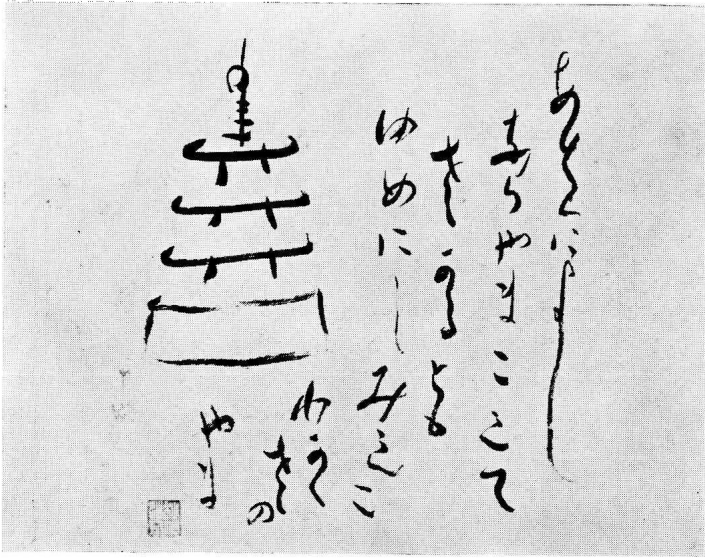 あをによし
ならやまこえて
さかるとも
ゆめにし
みえこ
わかく
さの
やま